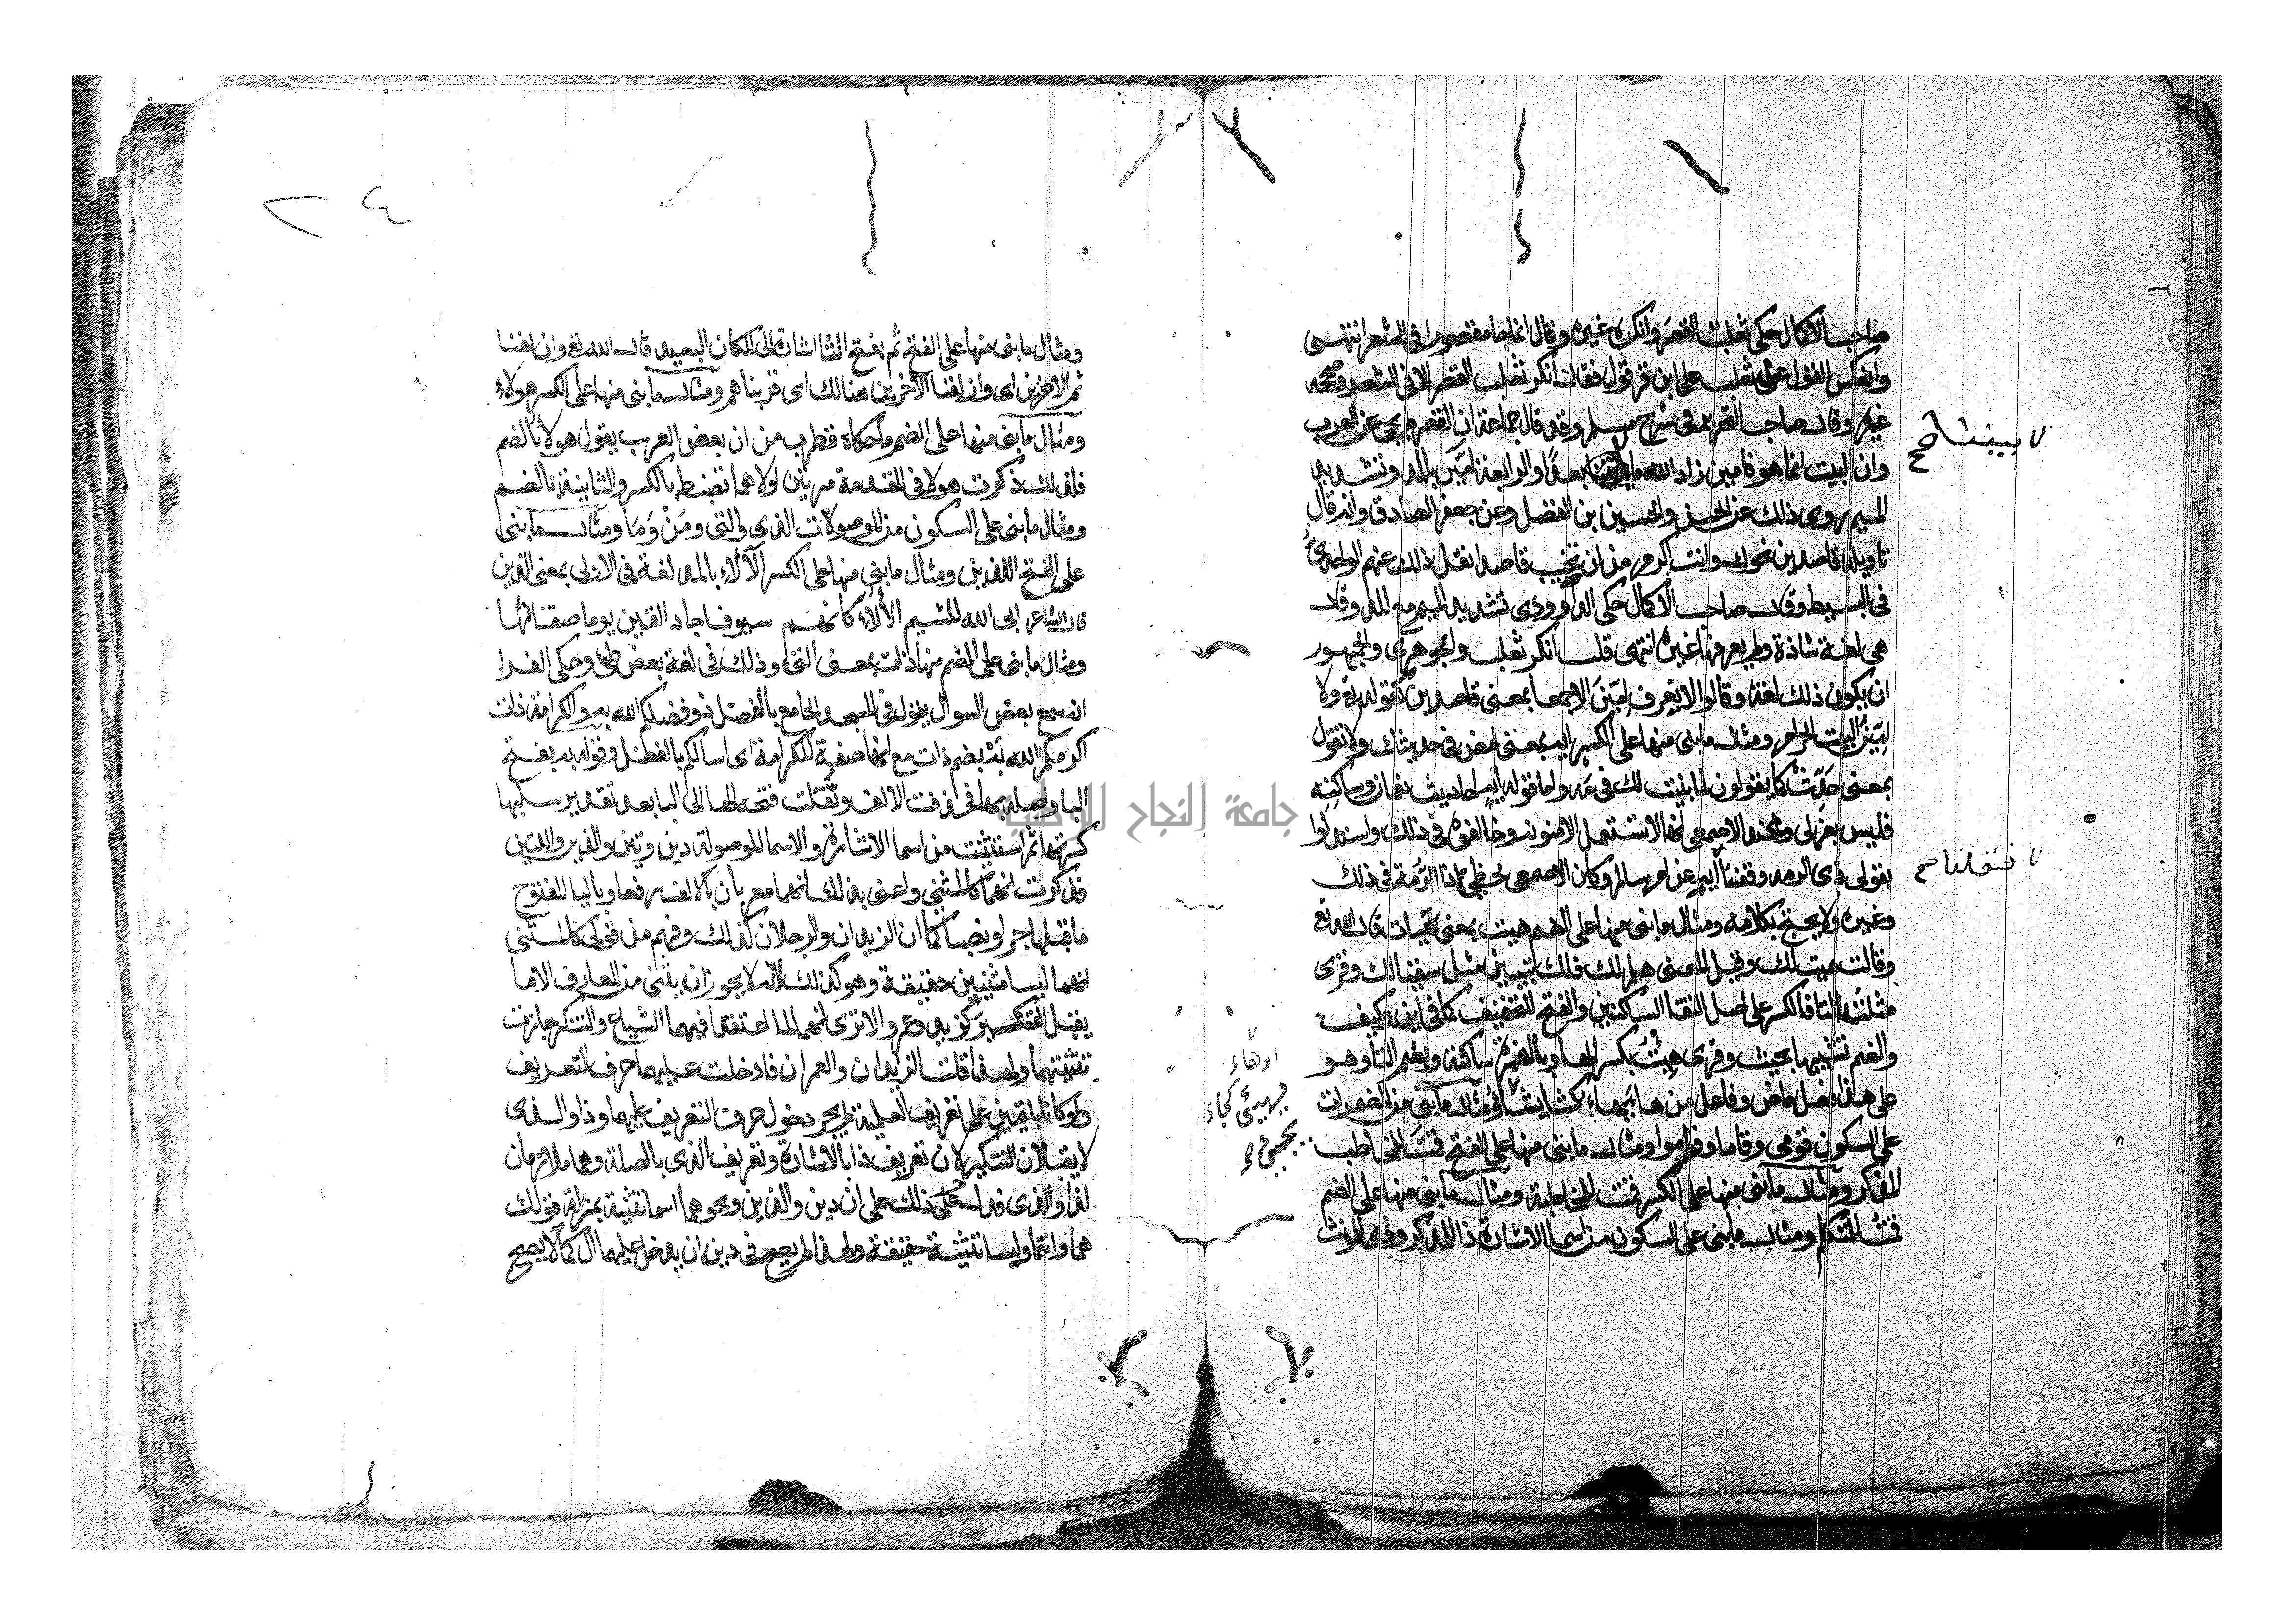 صاحب الاكمال حكى ثعلب القصر وانكره غيره وقال انما جا مقصورا فى الشعر انتهى
وانعكس القول عن ثعلب على ابن قرقول فقال انكر ثعلب القصر الا فى الشعر وصححه
غيره وقال صاحب التحرير فى شرح مسلم وقد قال جماعة ان القصر لم يجى عن العرب
وان البيت انما هو فامين زاد الله ما بيننا بعدا والرابعة امّين بالمد وتشديد
الميم روى ذلك عن الحسن والحسين ابن الفضل وعن جعفر الصادق وانه قال
تاويله قاصدين نحوك وانت اكرم من ان تخيب قاصدا نقل ذلك عنهم الواحدى
فى البسيط وقال صاحب الاكمال حكى الداوودى تشديد الميم مع المد وقال
هى لغة شاذة ولم يعرفها غيره انتهى قلت انكر ثعلب والجوهرى والجمهور
ان يكون ذلك لغة وقالوا لا يعرف امّين الا جمعا بمعنى قاصدين كقوله تع ولا
امّين البيت الحرام ومثال ما بنى منها على الكسر ايه بمعنى امض فى حديثك ولا تقول
بمعنى حدّث كما يقولون لما بنيت لك فى مه واما قوله ايه احاديث نعمان وساكنه
فليس بعربى وعند الاصمعى انها لا تستعمل الا منونه وخالفوه فى ذلك واستدلوا
بقولى ذى الرمه وقفنا ايه عن ام سالم وكان الاصمعى يخطى ذا الرمة فى ذلك
وغيره ولا يحتج بكلامه ومثال ما بنى منها على الضم هيت بمعنى تهيات قال الله تع
وقالت هيت لك وقيل المعنى هلم لك فلك تبيين مثل سقيا لك وقرى
مثلثة التا فالكسر على اصل التقا الساكنين والفتح للتخفيف كما فى اين وكيف
والضم تشبيها بحيث وقرى هئت بكسر الها وبالهمزة ساكنة وبضم التا وهو
على هذا فعل ماض وفاعل من هاء يهاء كشاء يشاء ومثال ما بنى من المضمرات
على السكون قومى وقاما وقاموا ومثال ما بنى منها على الفتح قمت للمخاطب
المذكر ومثال ما بنى منها على الكسر قمت للمخاطبة ومثال ما بنى منها على الضم
قمت للمتكلم ومثال ما بنى على السكون من اسما الاشارة ذا للمذكر وذى للمونث
ومثال ما بنى منها على الفتح ثم بفتح الثا اشارة الى المكان البعيد قال الله تع وازلفنا
ثم الاخرين اى وازلفنا الاخرين هنالك اى قربناهم ومثال ما بنى منها على الكسر هولاء
ومثال ما بنى منها على الضم ما حكاه قطرب من ان بعض العرب يقول هولاء بالضم
فلذلك ذكرت هولا فى المقدمة مرتين اولاهما تضبط بالكسر والثانية بالضم
ومثال ما بنى على السكون من الموصولات الذى والتى ومَنْ وَمَا ومثال ما بنى
على الفتح الذين ومثال ما بنى منها على الكسر الألاء بالمد لغة فى الاولى بمعنى الذين
قال الشاعر ابى الله للشم الألاء كانهم سيوف اجاد القين يوما صقالها
ومثال ما بنى على الضم منها ذات بمعنى التى وذلك فى لغة بعض طى وحكى الفرا
انه سمع بعض السوال يقول فى المسجد الجامع بالفضل ذو فضلكم الله به والكرامة ذات
اكرمكم الله بَهْ بضم ذات مع انها صفة للكرامة اى اسالكم بالفضل وقوله به بفتح
البا واصله بها فحذفت الالف ونقلت فتحة الها الى البا بعد تقدير سلبها
كسرتها ثم استثنيت من اسما الاشارة والاسما الموصولة ذين وتين والذين واللتين
فذكرت انهما كالمثنى واعنى بذلك انهما معربان بالالف رفعا وباليا المفتوح
ما قبلها جرا ونصبا كما ان الزيدان والرجلان كذلك وفهم من قولى كالمثنى
انهما ليسا مثنيين حقيقة وهو كذلك لانه لا يجوز ان يثنى من المعارف الا ما
يقبل التنكير كزيد وعمرو الا ترى انهما لما اعتقد فيهما الشياع والتنكر جازت
تثنيتهما ولهذا قلت الزيدان والعمران فادخلت عليهما حرف التعريف
ولو كانا باقيين على تعريف العلمية لم يجز دخول حرف التعريف عليهما وذا والذى
لا يقبلان التنكير لان تعريف ذا بالاشارة وتعريف الذى بالصلة وهما ملازمان
لذا والذى فدل ذلك على ان ذين والذين ونحوهما اسما تثنية بمنزلة قولك
هما وانتما وليسا تثنية حقيقة ولهذا لم يصح فى ذين ان يدخل عليهما ال كما لا يصح
٢٤
جامعة النجاح الوطنية